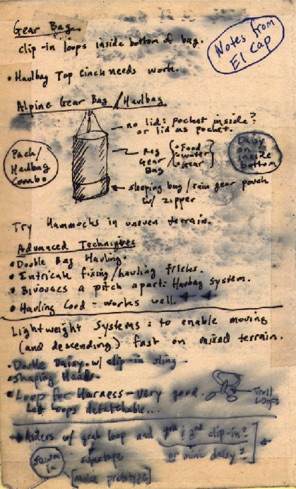 Gear Bag
clip-in loops inside bottom of bag.
Notes from
El Cap
• Haulbag Top cinch needs work.
Alpine Gear Bag / Haulbag
no lid: pocket inside?
or lid as pocket.
Pack/
Haulbag
Combo
Reg
Gear
Bag
Food
water
Gear
Daisy
on
inside
bottom
sleeping bag / rain gear pouch
w/ zipper
Try Hammocks in uneven terrain.
Advanced Techniques
• Double Bag Hauling.
• Intricate fixing/hauling tricks.
• Bivouacs a pitch apart: Haulbag system.
• Hauling Cord - works well.
Lightweight Systems: to enable moving
(and descending) fast on mixed terrain.
• Double Daisy w/ clip-in sling
• shaping Heads.
• Loop for Harness - very good.
Leg Loops debatable...
• Aiders w/ grab loop and 3rd clip-in?
supertape or mini daisy?
sewn
in
[make prototype]